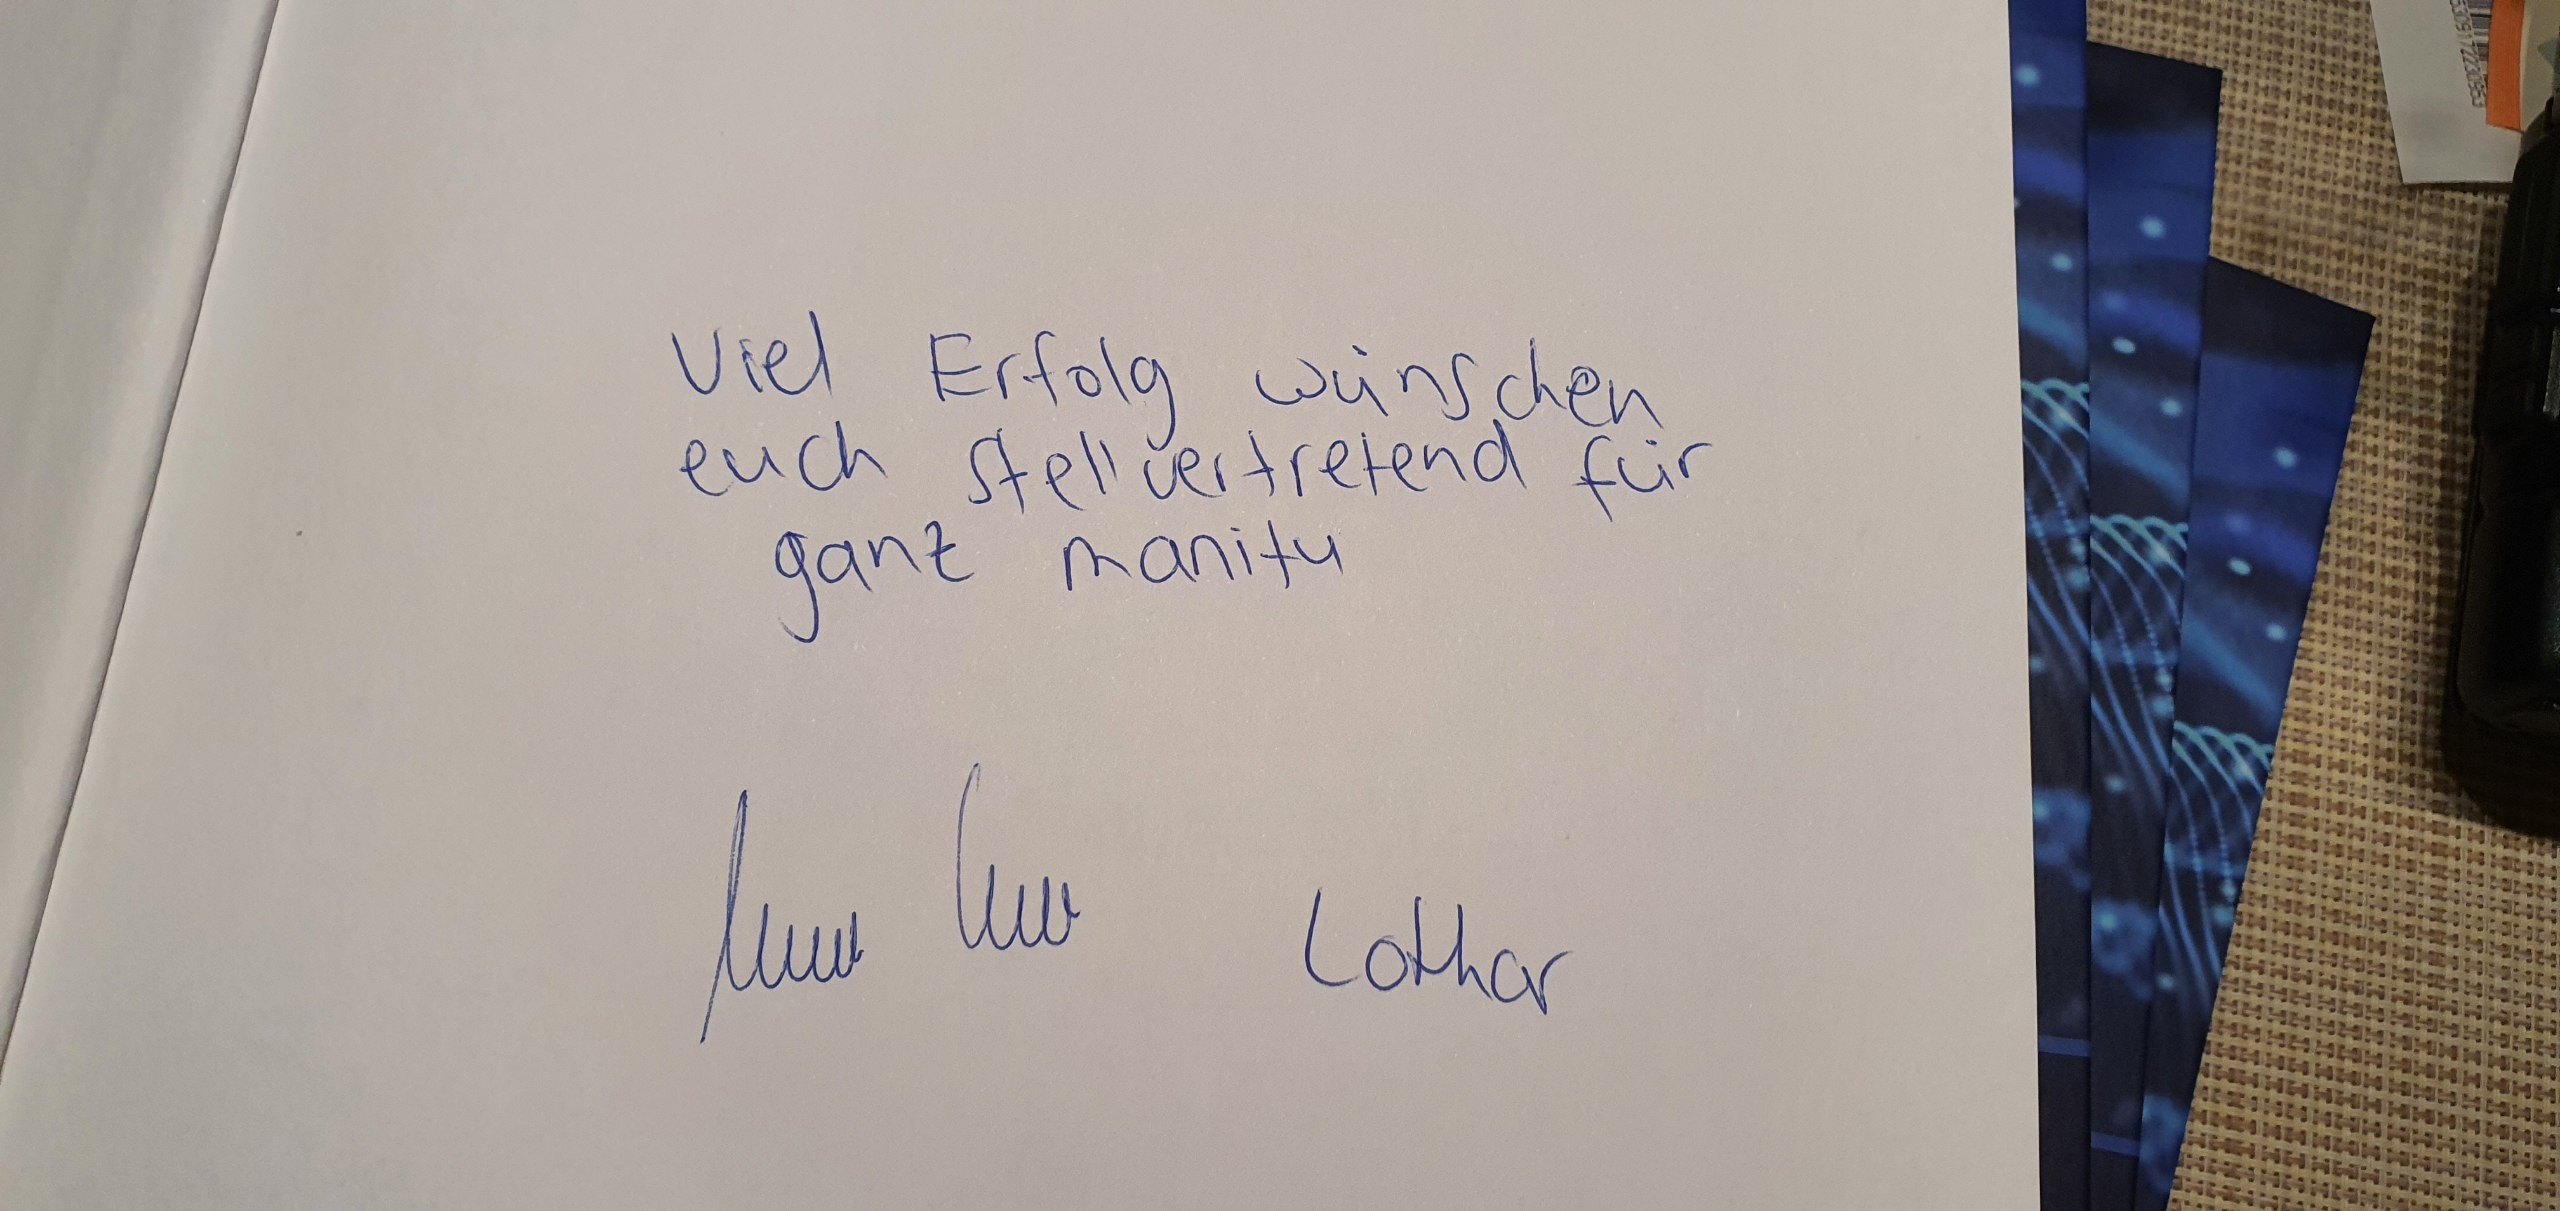 Viel Erfolg wünschen
euch stellvertretend für
ganz manitu
Lothar